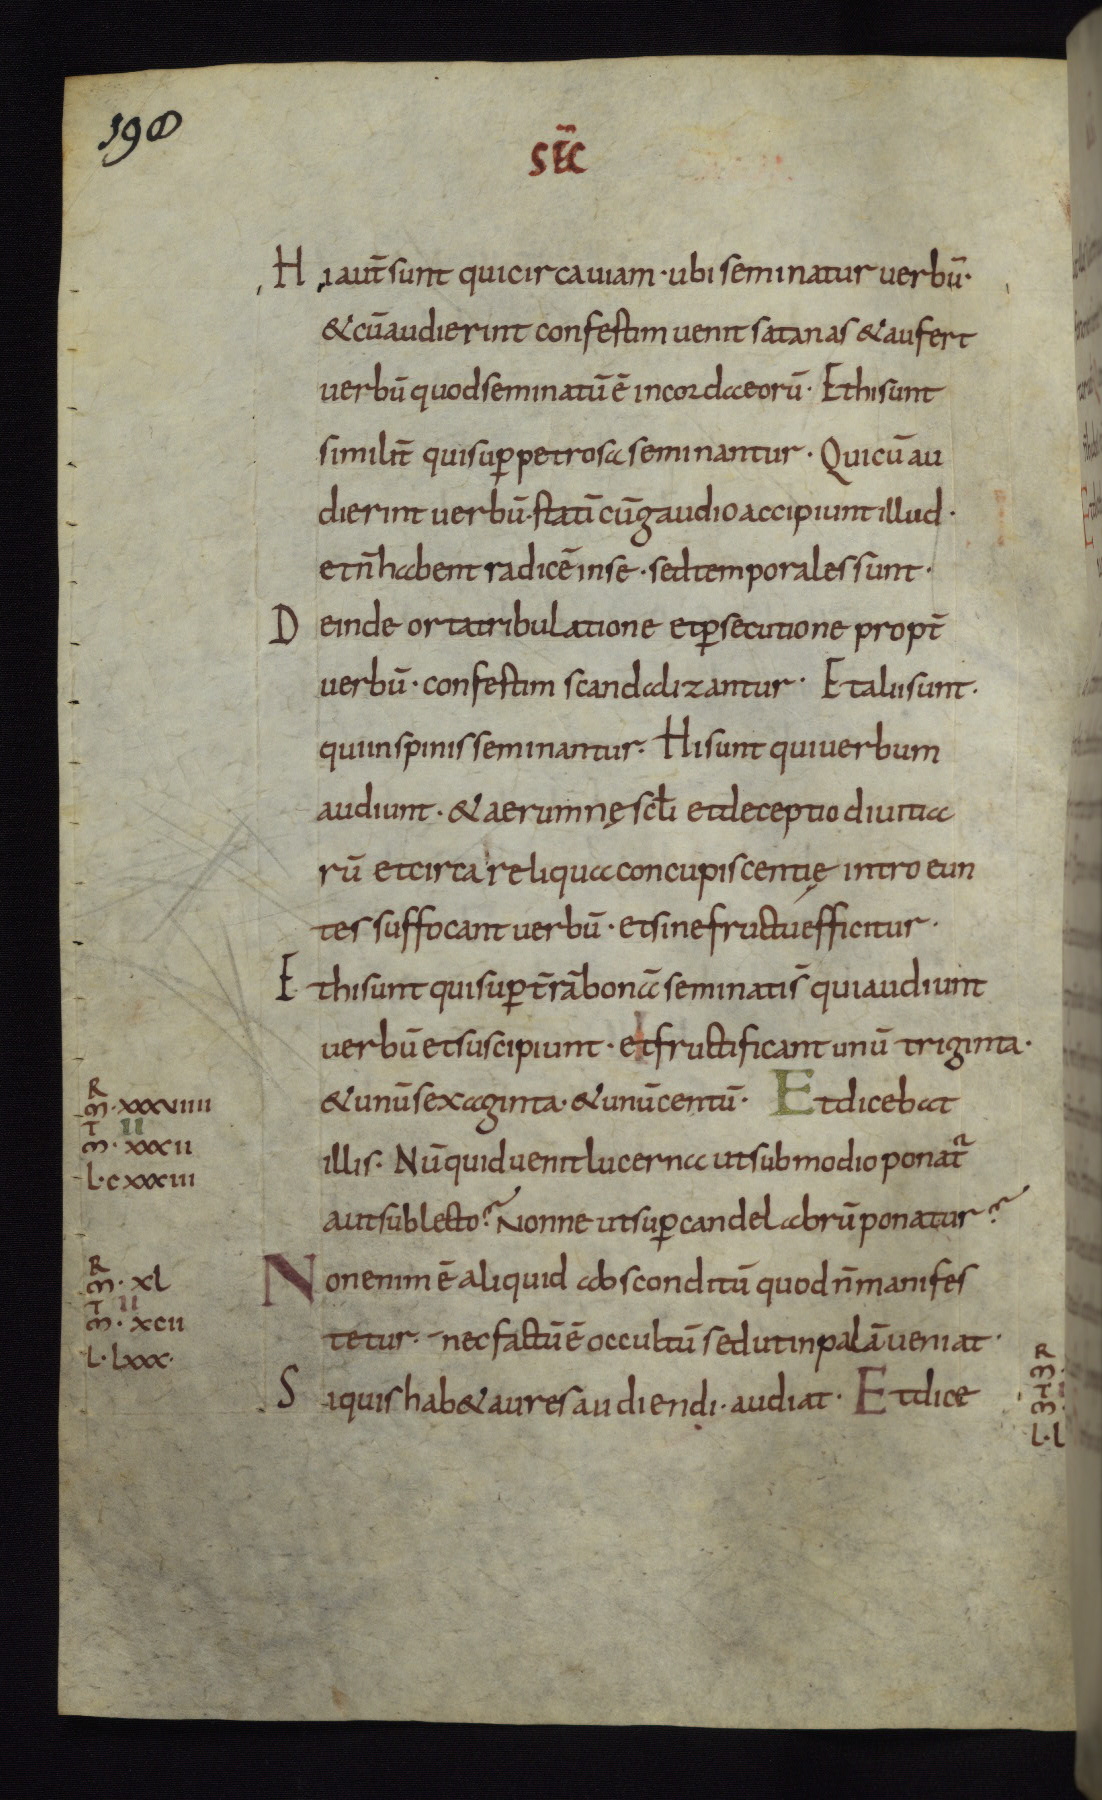 190
SEC̄
Hi aut̄ sunt qui circa uiam · ubi seminatur uerbū ·
& cū audierint confestim uenit satanas & aufert
uerbū quod seminatū ē in corda eorū · Et hi sunt
similit̄ qui sup̱ petrosa seminantur · Qui cū au
dierint uerbū · statī cū gaudio accipiunt illud ·
et n̄ habent radicē in se · sed temporales sunt ·
Deinde orta tribulatione et p̱secutione propt̄
uerbū · confestim scandalizantur · Et alii sunt ·
qui in spinis seminantur · Hi sunt qui uerbum
audiunt · & aerumnę scl̄i et deceptio diuitia
rū et circa reliqua concupiscentię intro eun
tes suffocant uerbū · et sine fructu efficitur ·
Et hi sunt qui sup̱ t̄rā bonā seminati s̄ qui audiunt
uerbū et suscipiunt · et fructificant unū triginta ·
& unū sexaginta · & unū centū · Et dicebat
illis · Nūquid uenit lucerna ut sub modio ponat᷑
aut sub lecto? Nonne ut sup̱ candelabrū ponatur?
Non enim ē aliquid absconditū quod n̄ manifes
tetur · nec factū ē occultū sed ut in palā ueniat ·
Si quis hab& aures audiendi · audiat · Et dice
R
M · XXXVIIII
T II
M · XXXII
L · CXXXIII
R
M · XL
T II
M · XCII
L · LXXX ·
R
M
T
M
L · L